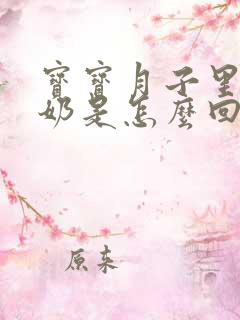 寶寶月子里
奶是怎麼回
原来